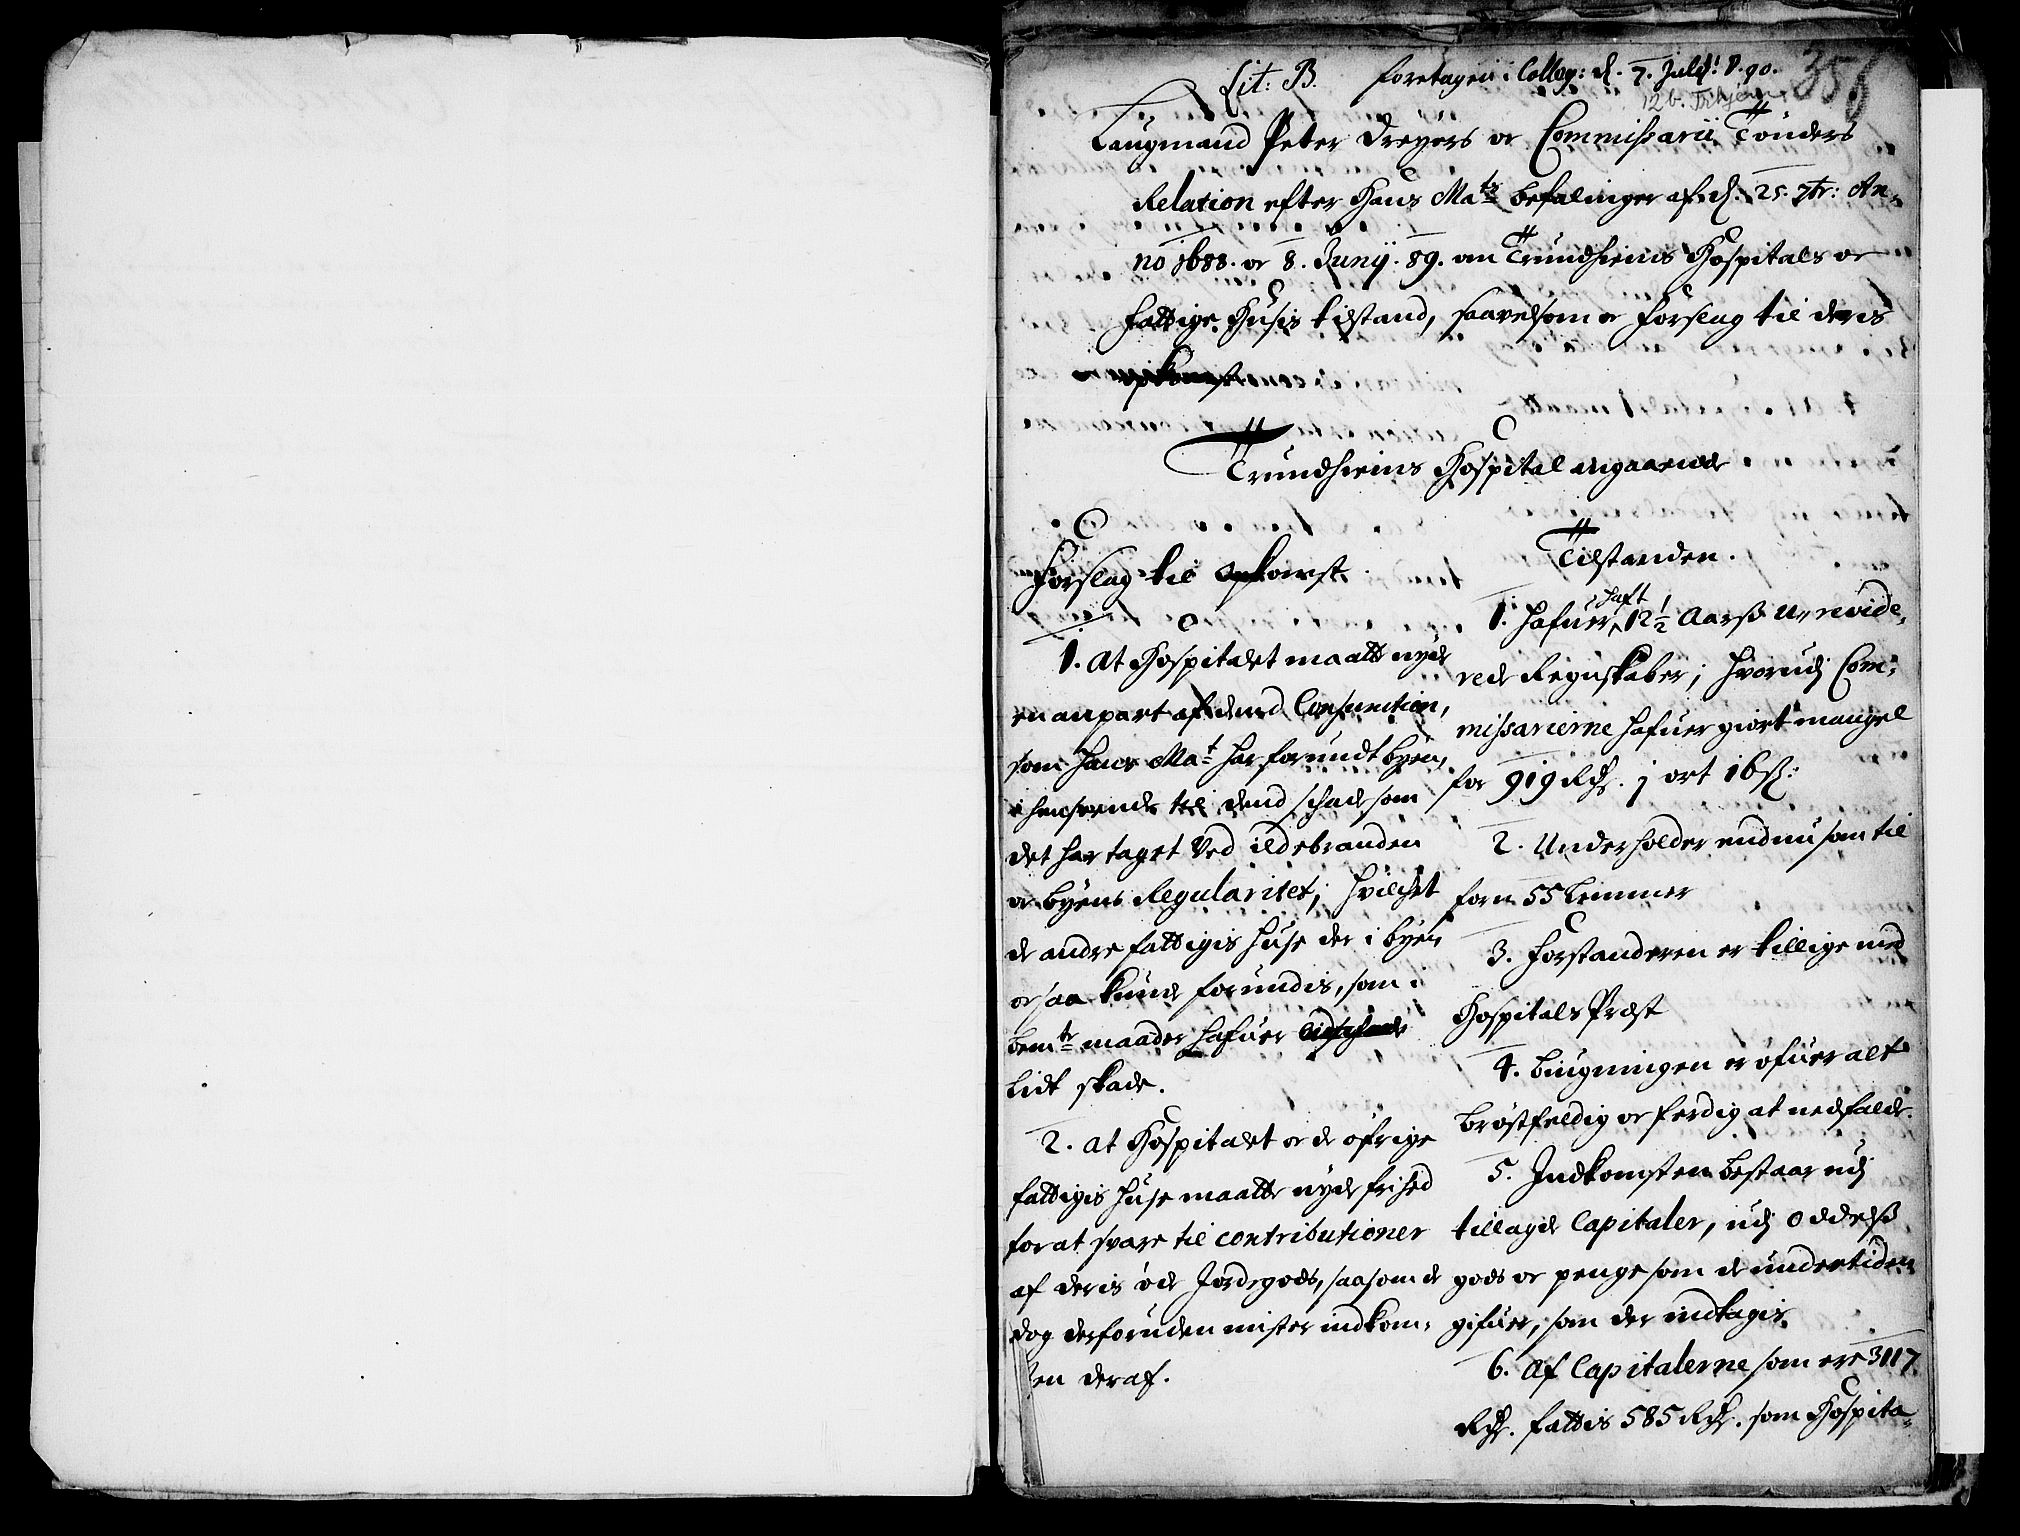 Lit: B. foretagen i Colleg: d. 7. Julij 1690.
356
Laugmand Peter Dreyers oc Commissarii Tønders
Relation efter Hans Mats befalinger af d. 25. 7br: An-
no 1688. oc 8. Junij. 89. om Trundhiems Hospitals oc
fattige Husis tilstand, saavelsom oc forslag til deris
opkomst.
Trundhiems Hospital angaaende
Forslag til opkomst.
1. At Hospitalet maatte nyde
en anpart af dend Consumtion,
som Hans Mat har forundt byen,
i henseende til dend schade som
det har taget ved ildebranden
oc byens Regularitet, hvilchet
de andre fattigis huse der i byen
oc saa kunde forundis, som i
bemte maader hafuer
lidt skade.
2. At Hospitalet oc de ofrige
fattigis huse maatte nyde frihed
for at svare til contributioner
af deris øde Jordegods, saasom de
dog derforuden mister indkom-
sten deraf.
Tilstanden.
1. Hafuer haft 12½ Aars U-revide-
rede Regnskaber, hvorudj Com-
missarierne hafuer giort mangel
for 919 Rdr. 1 ort 16 s:
2. Underholder endnu som til
forn 55 Lemmer
3. Forstanderen er tillige med
Hospitals Præst
4. Bugningen er ofuer alt
brøstfeldig oc ferdig at nedfalde.
5. Indkomsten bestaar udj
tillagde Capitaler, udj Oddels
gods oc penge som de undertiden
gifuer, som der indtagis.
6. Af Capitalerne som ere 3117
Rdr. fattis 585 Rdr. som Hospita-